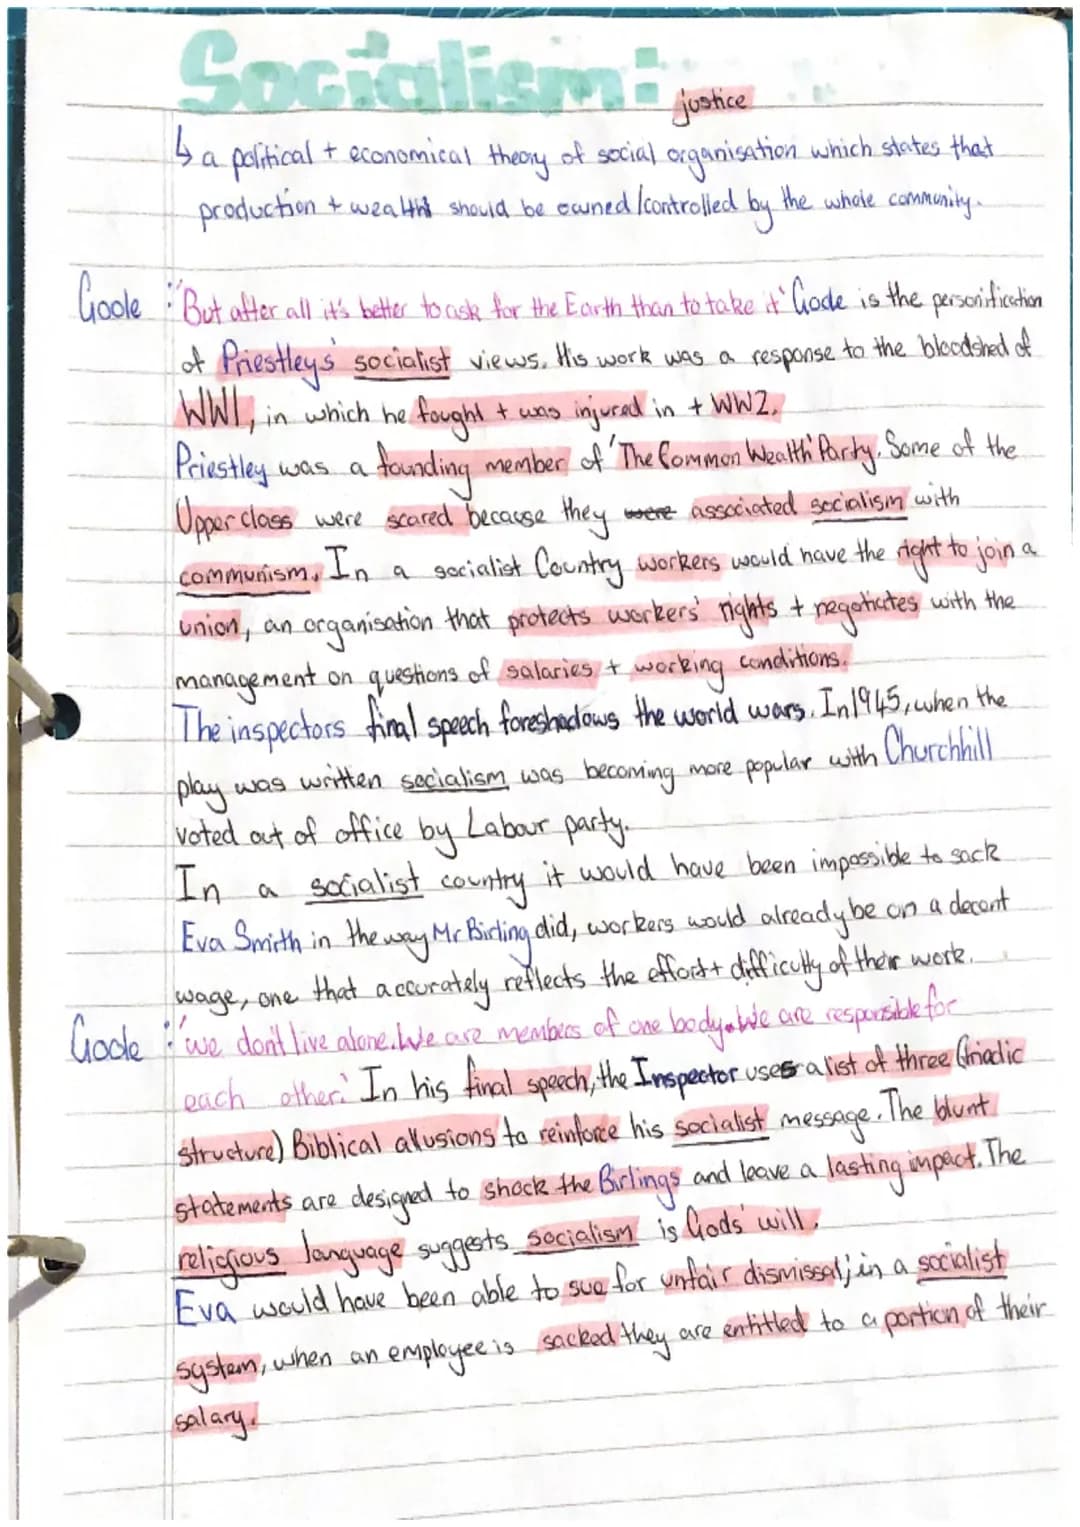 Socialism:
justice
↳ a political + economical theory of social organisation which states that
production + wealth should be owned/controlled by the whole community.
Goole : "But after all it's better to ask for the Earth than to take it' Goole is the personification
of Priestley's socialist views. His work was a response to the bloodshed of
WW1, in which he fought + was injured in + WW2.
Priestley was a founding member of 'The Common Wealth' Party. Some of the
Upper class were scared because they were associated socialism with
communism. In a socialist Country workers would have the right to join a
union, an organisation that protects workers' rights + negotiates with the
management on questions of salaries + working conditions.
The inspectors final speech foreshadows the world wars. In 1945, when the
play was written socialism was becoming more popular with Churchhill
voted out of office by Labour party.
In a socialist country it would have been impossible to sack
Eva Smith in the way Mr Birling did, workers would already be on a decent
wage, one that accurately reflects the effort + difficulty of their work.
Goole : 'we don't live alone. We are members of one body. We are responsible for
each other.' In his final speech, the Inspector uses a list of three (triadic
structure) Biblical allusions to reinforce his socialist message. The blunt
statements are designed to shock the Birlings and leave a lasting impact. The
religious language suggests socialism is Gods' will.
Eva would have been able to sue for unfair dismissal; in a socialist
system, when an employee is sacked they are entitled to a portion of their
salary.